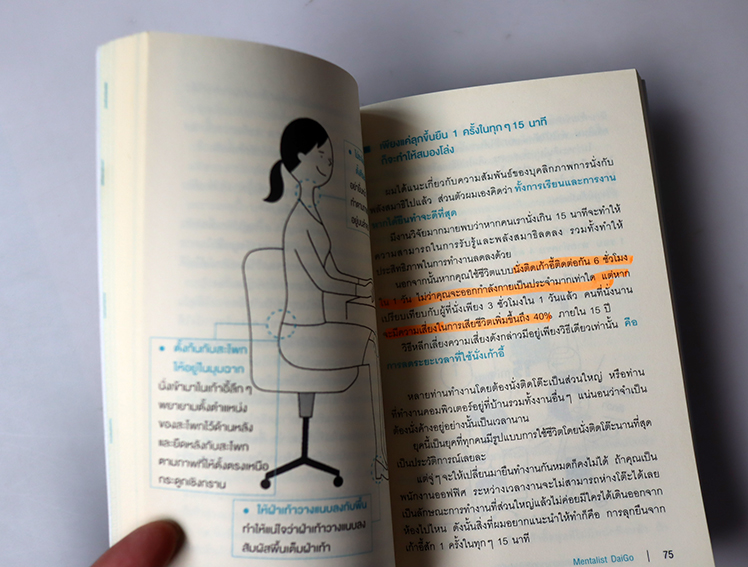 ● ตั้งก้นกับสะโพก
ให้อยู่ในมุมฉาก
นั่งเข้ามาในเก้าอี้ลึกๆ
พยายามตั้งตำแหน่ง
ของสะโพกไว้ด้านหลัง
และยืดหลังกับสะโพก
ตามภาพที่ให้ตั้งตรงเหนือ
กระดูกเชิงกราน
● ให้ฝ่าเท้าวางแนบลงกับพื้น
ทำให้แน่ใจว่าฝ่าเท้าวางแนบลง
สัมผัสพื้นเต็มฝ่าเท้า
เพียงแค่ลุกขึ้นยืน 1 ครั้งในทุกๆ 15 นาที
ก็จะทำให้สมองโล่ง
ผมได้แนะเกี่ยวกับความสัมพันธ์ของบุคลิกภาพการนั่งกับ
พลังสมาธิไปแล้ว ส่วนตัวผมเองคิดว่า ทั้งการเรียนและการงาน
หากใช้ยืนทำจะดีที่สุด
มีงานวิจัยมากมายพบว่าหากคนเรานั่งเกิน 15 นาทีจะทำให้
ความสามารถในการรับรู้และพลังสมาธิลดลง รวมทั้งทำให้
ประสิทธิภาพในการทำงานลดลงด้วย
นอกจากนั้นหากคุณใช้ชีวิตแบบนั่งติดเก้าอี้ติดต่อกัน 6 ชั่วโมง
ใน 1 วัน ไม่ว่าคุณจะออกกำลังกายเป็นประจำมากเท่าใด แต่หาก
เปรียบเทียบกับผู้ที่นั่งเพียง 3 ชั่วโมงใน 1 วันแล้ว คนที่นั่งนาน
จะมีความเสี่ยงในการเสียชีวิตเพิ่มขึ้นถึง 40% ภายใน 15 ปี
วิธีหลีกเลี่ยงความเสี่ยงดังกล่าวมีอยู่เพียงวิธีเดียวเท่านั้น คือ
การลดระยะเวลาที่ใช้นั่งเก้าอี้
หลายท่านทำงานโดยต้องนั่งโต๊ะเป็นส่วนใหญ่ หรือท่าน
ที่ทำงานคอมพิวเตอร์อยู่ที่บ้านรวมทั้งงานอื่นๆ แน่นอนว่าจำเป็น
ต้องนั่งค้างอยู่อย่างนั้นเป็นเวลานาน
ยุคนี้เป็นยุคที่ทุกคนมีรูปแบบการใช้ชีวิตโดยนั่งติดโต๊ะนานที่สุด
เป็นประวัติการณ์เลยละ
แต่จู่ๆ จะให้เปลี่ยนมายืนทำงานกันหมดก็คงไม่ได้ ถ้าคุณเป็น
พนักงานออฟฟิศ ระหว่างเวลางานจะไม่สามารถห่างโต๊ะได้เลย
เป็นลักษณะการทำงานที่ส่วนใหญ่แล้วไม่ค่อยมีใครได้เดินออกจาก
ห้องไปไหน ดังนั้นสิ่งที่ผมอยากแนะนำให้ทำก็คือ การลุกยืนจาก
เก้าอี้สัก 1 ครั้งในทุกๆ 15 นาที
Mentalist DaiGo | 75